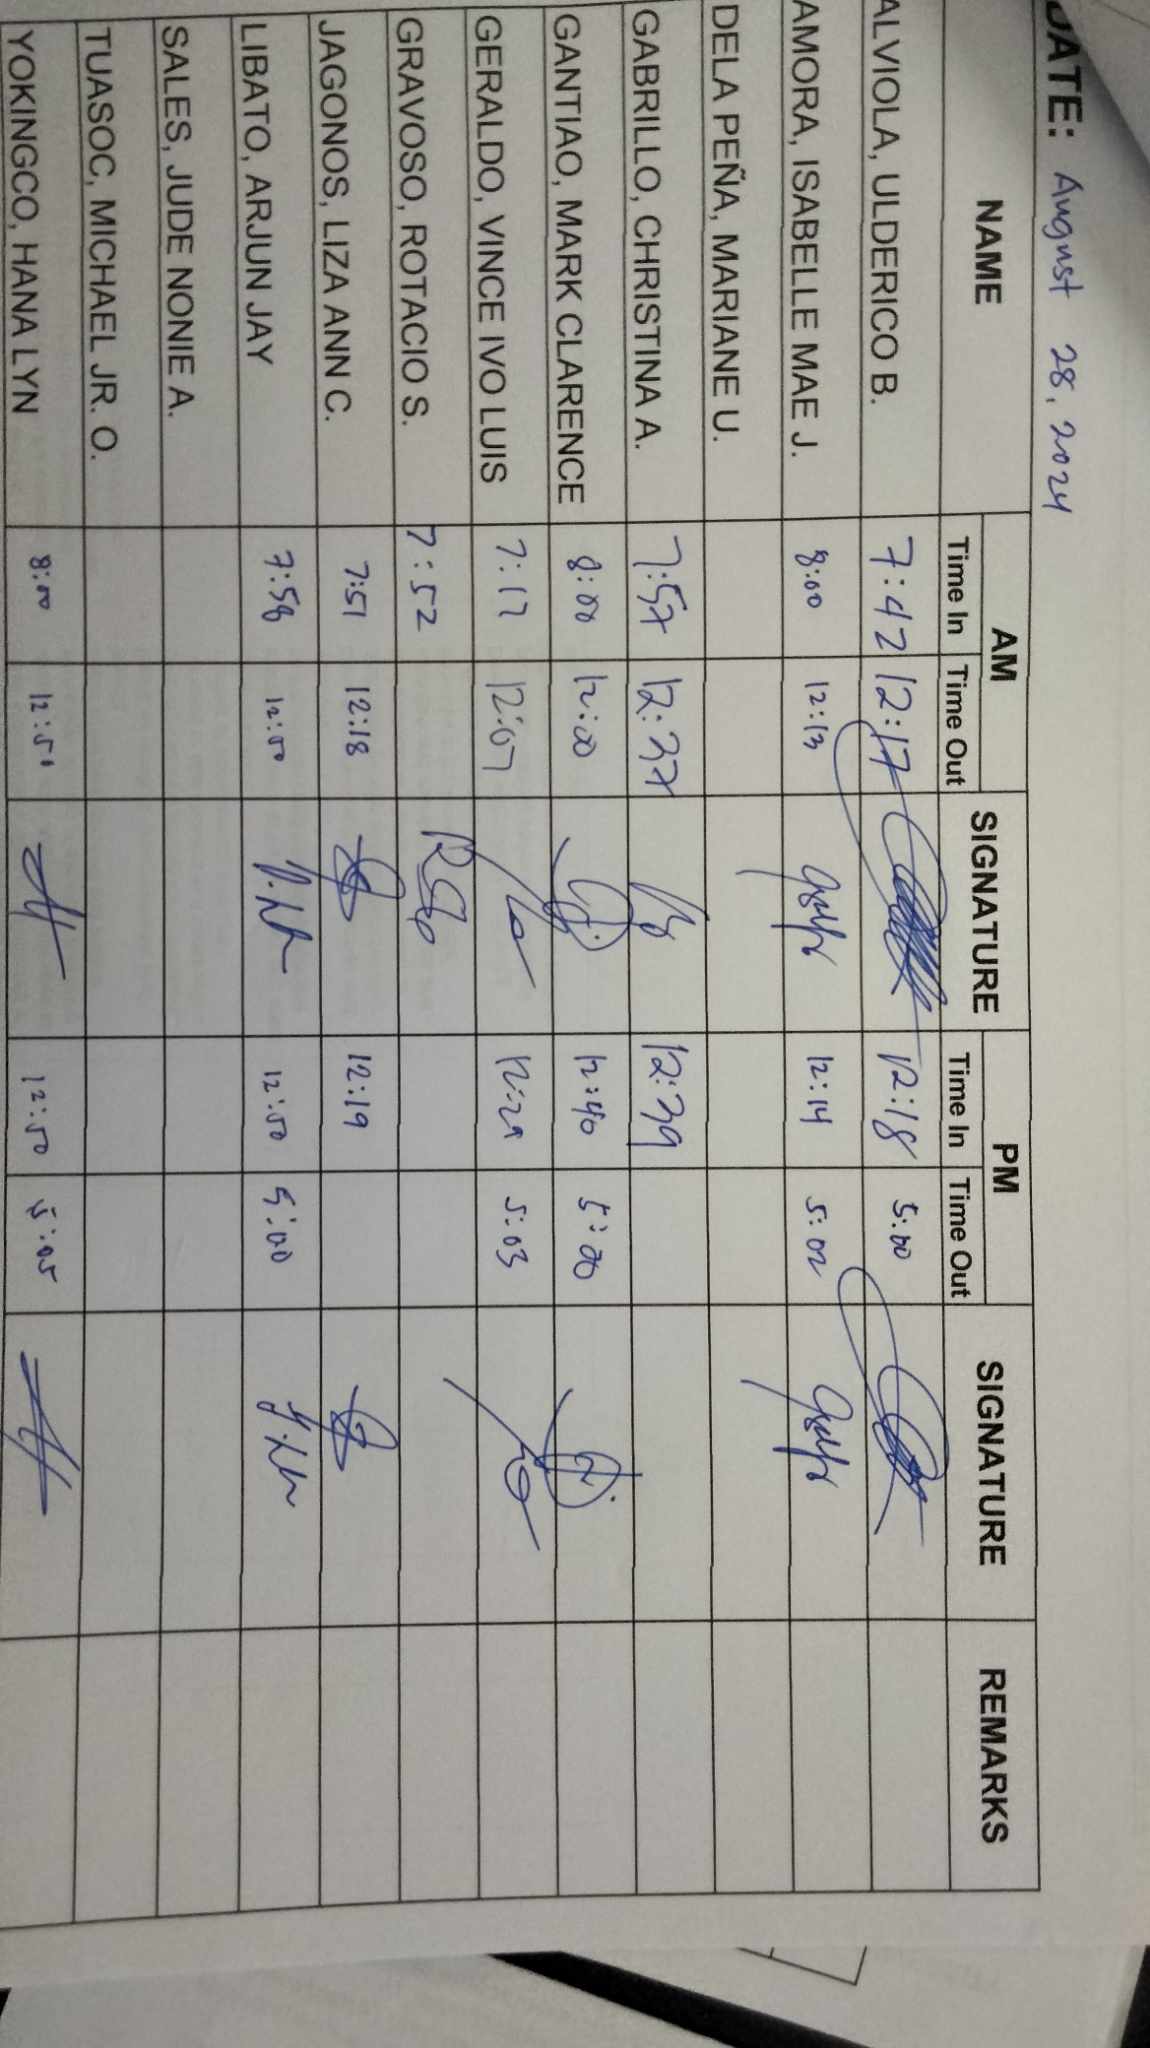 DATE: August 28, 2024
NAME AM SIGNATURE PM SIGNATURE REMARKS
Time In Time Out Time In Time Out
ALVIOLA, ULDERICO B. 7:42 12:17 12:18 5:00
AMORA, ISABELLE MAE J. 8:00 12:13 12:14 5:02
DELA PEÑA, MARIANE U.
GABRILLO, CHRISTINA A. 7:57 12:37 12:39
GANTIAO, MARK CLARENCE 8:00 12:00 12:40 5:00
GERALDO, VINCE IVO LUIS 7:17 12:07 12:29 5:03
GRAVOSO, ROTACIO S. 7:52
JAGONOS, LIZA ANN C. 7:51 12:18 12:19
LIBATO, ARJUN JAY 7:58 12:00 12:50 5:00
SALES, JUDE NONIE A.
TUASOC, MICHAEL JR. O.
YOKINGCO, HANA LYN 8:00 12:50 5:05